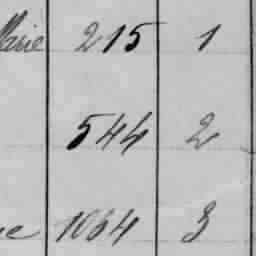 Marie 215 1
544 2
1064 3